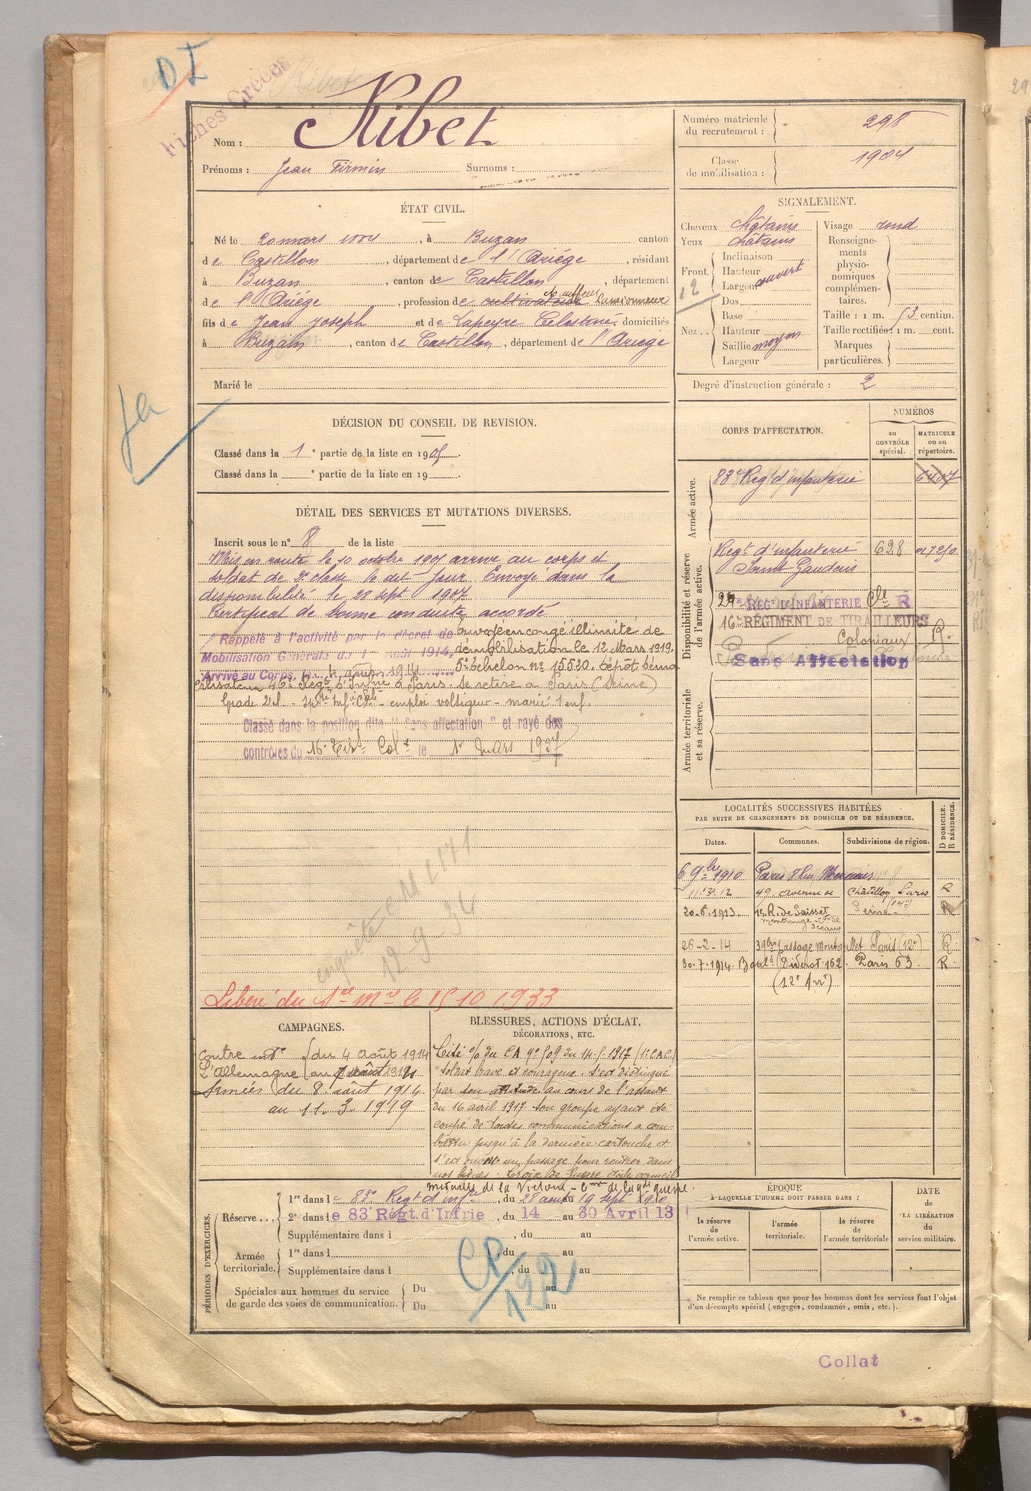 DI
Fiches Créées
Nom : Ribet
Prénoms : Jean Firmin Surnoms :
Numéro matricule du recrutement : 298
Classe de mobilisation : 1904
ÉTAT CIVIL.
Né le 20 mars 1884, à Buzan canton
de Castillon, département de l'Ariège, résidant
à Buzan, canton de Castillon, département
de l'Ariège, profession de cultivateur
fils de Jean Joseph et de Lapeyre Célestine domiciliés
à Buzan, canton de Castillon, département de l'Ariège
Marié le
SIGNALEMENT.
Cheveux châtains Visage rond
Yeux châtains
Front. Inclinaison
Hauteur
Largeur ouvert
Dos
Nez.. Base
Hauteur
Saillie moyen
Largeur
Renseignements physionomiques complémentaires.
Taille : 1 m. 63 centim.
Taille rectifiée : 1 m. cent.
Marques particulières.
Degré d'instruction générale : 2
DÉCISION DU CONSEIL DE REVISION.
Classé dans la 1e partie de la liste en 1905.
Classé dans la e partie de la liste en 19
CORPS D'AFFECTATION.
NUMÉROS
au CONTRÔLE spécial.
MATRICULE ou au répertoire.
Armée active.
83e Regt d'infanterie
Disponibilité et réserve de l'armée active.
Regt d'infanterie 628
Saint Gaudens
24e REGt D'INFANTERIE Cle R
16e RÉGIMENT DE TIRAILLEURS
Coloniaux R.
Sans Affectation
Armée territoriale et sa réserve.
DÉTAIL DES SERVICES ET MUTATIONS DIVERSES.
Inscrit sous le n° 8 de la liste
Mis en route le 10 octobre 1905 arrivé au corps et
soldat de 2e classe le dit jour. Envoyé dans la
disponibilité le 28 sept 1907
Certificat de bonne conduite accordé
Rappelé à l'activité par le décret de
Mobilisation Générale du 1er août 1914,
Arrivé au Corps, le 4 août 1914
Envoyé en congé illimité de
démobilisation le 12 Mars 1919,
5e échelon n° 15520. Dépôt démo
bilisateur 46e Régt d'Infrie à Paris. Se retire à Paris (Seine)
Grade - emploi voltigeur - marié 1 enf.
Classé dans la position dite "Sans affectation" et rayé des
contrôles du 16e Tirs Colx le 1er Mars 1927
enquête
12-9-34
Libéré du Sce Mre le 15 10 1933
LOCALITÉS SUCCESSIVES HABITÉES
PAR SUITE DE CHANGEMENTS DE DOMICILE OU DE RÉSIDENCE.
Dates. Communes. Subdivisions de région. D DOMICILE. R RÉSIDENCE.
6 9bre 1910 Paris
11.3.12 49 avenue de Châtillon Paris R
20.6.1913. Seine R
26-2-14 Passage Paris (12e) R.
30.7.1914. Bould Diderot 162 Paris 63. R.
(12e Arrt)
CAMPAGNES.
Contre l'Allemagne du 4 août 1914
Armées du 8 août 1914
au 11.3.1919
BLESSURES, ACTIONS D'ÉCLAT,
DÉCORATIONS, ETC.
Cité o/o du CA n° 509 du 14.5.1917 (1er C.A.C)
"Soldat brave et courageux. S'est distingué
par son attitude au cours de l'assaut
du 16 avril 1917. Son groupe ayant été
coupé de toutes communications a com-
battu jusqu'à la dernière cartouche et
s'est ouvert un passage pour rentrer dans
nos lignes. Croix de Guerre étoile vermeil
médaille de la Victoire - Cve de la Gde guerre.
PÉRIODES D'EXERCICES.
Réserve... 1re dans le 83e Regt d'infie, du 28 août au 19 sept 1910
2e dans le 83e Régt. d'Infrie, du 14 au 30 Avril 13
Supplémentaire dans l , du au
Armée territoriale. 1re dans l , du au
Supplémentaire dans l , du au
Spéciales aux hommes du service de garde des voies de communication. Du au
Du au
ÉPOQUE
À LAQUELLE L'HOMME DOIT PASSER DANS :
la réserve de l'armée active.
l'armée territoriale.
la réserve de l'armée territoriale
DATE de LA LIBÉRATION du service militaire.
Ne remplir ce tableau que pour les hommes dont les services font l'objet
d'un décompte spécial (engagés, condamnés, omis, etc.).
Collat